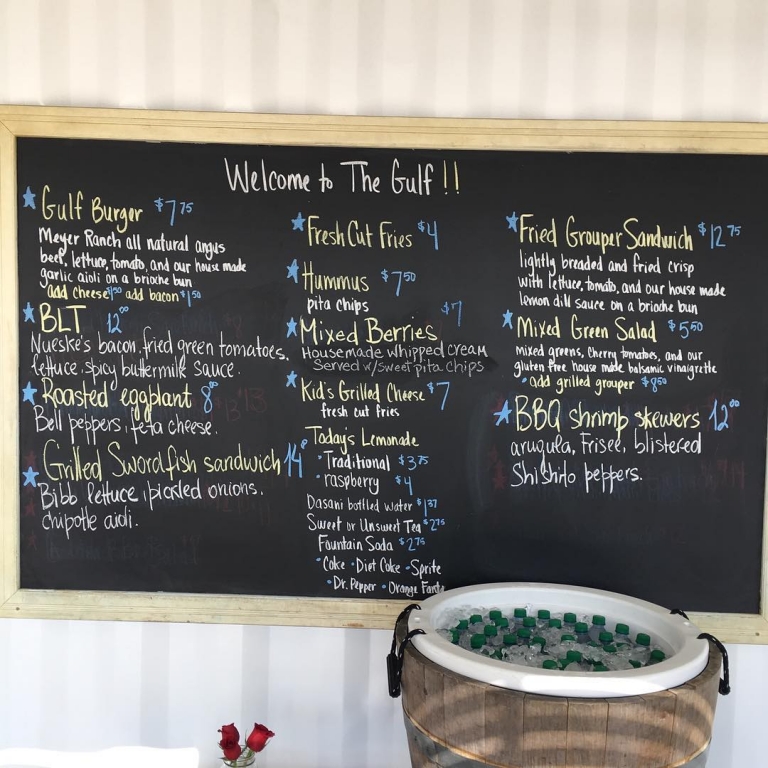 Welcome to The Gulf !!
Gulf Burger $7.75
Meyer Ranch all natural angus
beef, lettuce, tomato, and our house made
garlic aioli on a brioche bun
add cheese $1.50 add bacon $1.50
BLT 12.00
Nueske's bacon, fried green tomatoes,
lettuce, spicy buttermilk sauce.
Roasted eggplant 8.00
Bell peppers, feta cheese.
Grilled Swordfish sandwich 14.00
Bibb lettuce, pickled onions,
chipotle aioli.
Fresh Cut Fries $4
Hummus $7.50
pita chips
Mixed Berries $7
Housemade whipped cream
Served w/sweet pita chips
Kid's Grilled Cheese $7
fresh cut fries
Today's Lemonade
• Traditional $3.75
• raspberry $4
Dasani bottled water $1.37
Sweet or Unsweet Tea $2.75
Fountain Soda $2.75
• Coke • Diet Coke • Sprite
• Dr. Pepper • Orange Fanta
Fried Grouper Sandwich $12.75
lightly breaded and fried crisp
with lettuce, tomato, and our house made
lemon dill sauce on a brioche bun
Mixed Green Salad $5.50
mixed greens, cherry tomatoes, and our
gluten free house made balsamic vinaigrette
• add grilled grouper $8.50
BBQ shrimp skewers 12.00
arugula, Frisee, blistered
Shishito peppers.